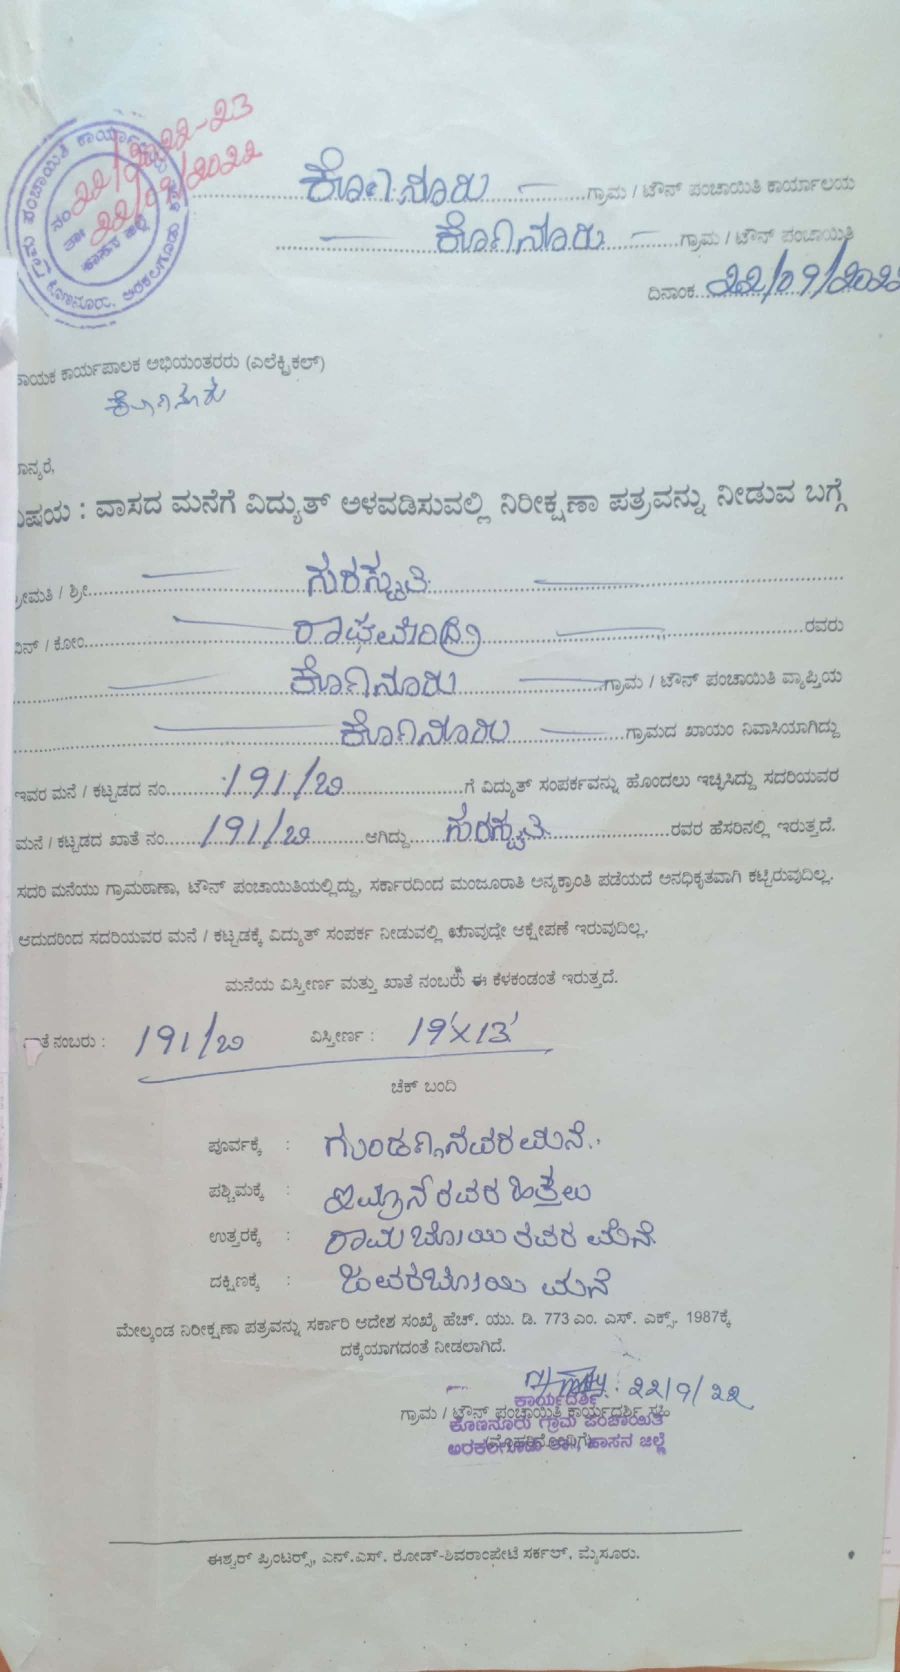 ನಂ 22/2022-23
ತಾ 22/09/2022
ಕೊಣನೂರು ಗ್ರಾಮ / ಟೌನ್ ಪಂಚಾಯಿತಿ ಕಾರ್ಯಾಲಯ
ಕೊಣನೂರು ಗ್ರಾಮ / ಟೌನ್ ಪಂಚಾಯಿತಿ
ದಿನಾಂಕ 22/09/202
ಾಯಕ ಕಾರ್ಯಪಾಲಕ ಅಭಿಯಂತರರು (ಎಲೆಕ್ಟ್ರಿಕಲ್)
ಕೊಣನೂರು
ಾನ್ಯರೆ,
ವಿಷಯ : ವಾಸದ ಮನೆಗೆ ವಿದ್ಯುತ್ ಅಳವಡಿಸುವಲ್ಲಿ ನಿರೀಕ್ಷಣಾ ಪತ್ರವನ್ನು ನೀಡುವ ಬಗ್ಗೆ
ಶ್ರೀಮತಿ / ಶ್ರೀ ಸರಸ್ವತಿ
ಬಿನ್ / ಕೋಂ ರಾಘವೇಂದ್ರ ರವರು
ಕೊಣನೂರು ಗ್ರಾಮ / ಟೌನ್ ಪಂಚಾಯಿತಿ ವ್ಯಾಪ್ತಿಯ
ಕೊಣನೂರು ಗ್ರಾಮದ ಖಾಯಂ ನಿವಾಸಿಯಾಗಿದ್ದು
ಇವರ ಮನೆ / ಕಟ್ಟಡದ ನಂ 191/ಬಿ ಗೆ ವಿದ್ಯುತ್ ಸಂಪರ್ಕವನ್ನು ಹೊಂದಲು ಇಚ್ಛಿಸಿದ್ದು ಸದರಿಯವರ
ಮನೆ / ಕಟ್ಟಡದ ಖಾತೆ ನಂ 191/ಬಿ ಆಗಿದ್ದು ಸರಸ್ವತಿ ರವರ ಹೆಸರಿನಲ್ಲಿ ಇರುತ್ತದೆ.
ಸದರಿ ಮನೆಯು ಗ್ರಾಮಠಾಣಾ, ಟೌನ್ ಪಂಚಾಯಿತಿಯಲ್ಲಿದ್ದು, ಸರ್ಕಾರದಿಂದ ಮಂಜೂರಾತಿ ಅನ್ಯಕ್ರಾಂತಿ ಪಡೆಯದೆ ಅನಧಿಕೃತವಾಗಿ ಕಟ್ಟಿರುವುದಿಲ್ಲ.
ಆದುದರಿಂದ ಸದರಿಯವರ ಮನೆ / ಕಟ್ಟಡಕ್ಕೆ ವಿದ್ಯುತ್ ಸಂಪರ್ಕ ನೀಡುವಲ್ಲಿ ಯಾವುದೇ ಆಕ್ಷೇಪಣೆ ಇರುವುದಿಲ್ಲ.
ಮನೆಯ ವಿಸ್ತೀರ್ಣ ಮತ್ತು ಖಾತೆ ನಂಬರು ಈ ಕೆಳಕಂಡಂತೆ ಇರುತ್ತದೆ.
ಾತೆ ನಂಬರು : 191/ಬಿ ವಿಸ್ತೀರ್ಣ : 19'X13'
ಚೆಕ್ ಬಂದಿ
ಪೂರ್ವಕ್ಕೆ : ಗುಂಡಣ್ಣನವರ ಮನೆ
ಪಶ್ಚಿಮಕ್ಕೆ : ಇಮ್ರಾನ್ ರವರ ಹಿತ್ತಲು
ಉತ್ತರಕ್ಕೆ : ರಾಮಬೋಯಿ ರವರ ಮನೆ
ದಕ್ಷಿಣಕ್ಕೆ : ಮನೆ
ಮೇಲ್ಕಂಡ ನಿರೀಕ್ಷಣಾ ಪತ್ರವನ್ನು ಸರ್ಕಾರಿ ಆದೇಶ ಸಂಖ್ಯೆ ಹೆಚ್. ಯು. ಡಿ. 773 ಎಂ. ಎಸ್. ಎಕ್ಸ್. 1987ಕ್ಕೆ
ದಕ್ಕೆಯಾಗದಂತೆ ನೀಡಲಾಗಿದೆ.
22/9/22
ಕಾರ್ಯದರ್ಶಿ
ಗ್ರಾಮ / ಟೌನ್ ಪಂಚಾಯಿತಿ ಕಾರ್ಯದರ್ಶಿ ಸಹಿ
ಕೊಣನೂರು ಗ್ರಾಮ ಪಂಚಾಯಿತಿ
(ಮೊಹರಿನೊಂದಿಗೆ)
ಅರಕಲಗೂಡು ತಾ, ಹಾಸನ ಜಿಲ್ಲೆ
ಈಶ್ವರ್ ಪ್ರಿಂಟರ್ಸ್, ಎನ್.ಎಸ್. ರೋಡ್-ಶಿವರಾಂಪೇಟೆ ಸರ್ಕಲ್, ಮೈಸೂರು.